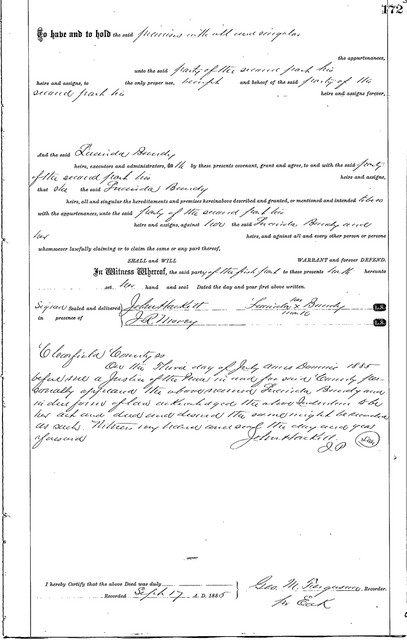 172
To have and to hold the said premises with all and singular
the appurtenances,
unto the said party of the second part his
heirs and assigns, to the only proper use, benefit and behoof of the said party of the
second part his heirs and assigns forever,
And the said Lucinda Bundy
heirs, executors and administrators, doth by these presents covenant, grant and agree, to and with the said party
of the second part his heirs and assigns,
that she the said Lucinda Bundy
heirs, all and singular the hereditaments and premises hereinabove described and granted, or mentioned and intended
with the appurtenances, unto the said party of the second part his
heirs and assigns, against her the said Lucinda Bundy and
her heirs, and against all and every other person or persons
whomsoever lawfully claiming or to claim the same or any part thereof,
SHALL and WILL WARRANT and forever DEFEND.
In Witness Whereof, the said party of the first part to these presents hath hereunto
set her hand and seal Dated the day and year first above written.
Signed Sealed and delivered John Hockett Lucinda her x mark Bundy L.S.
in presence of L.S.
Clearfield County ss
On the third day of July Anno Domini 1885
before me a Justice of the Peace in and for said County per-
sonally appeared the above named Lucinda Bundy and
in due form of law acknowledged the above Indenture to be
her act and deed and desired the same might be recorded
as such. Witness my hand and seal the day and year
aforesaid John Hockett
J.P. Seal
I hereby Certify that the above Deed was duly
Recorded Sept 17 A. D. 1885 Geo. M. Ferguson Recorder.